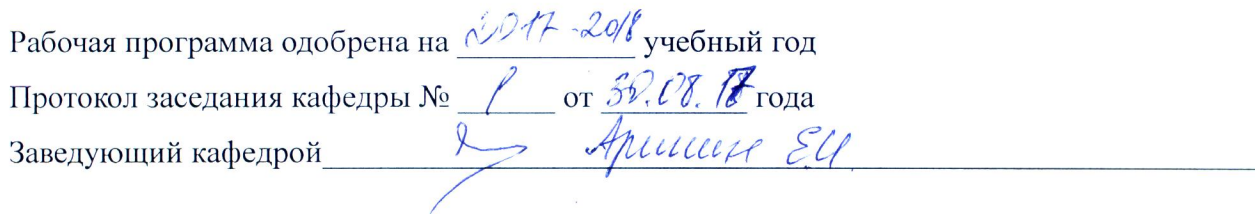 Рабочая программа одобрена на 2017-2018 учебный год
Протокол заседания кафедры № 1 от 30.08.17 года
Заведующий кафедрой Аринин ЕИ